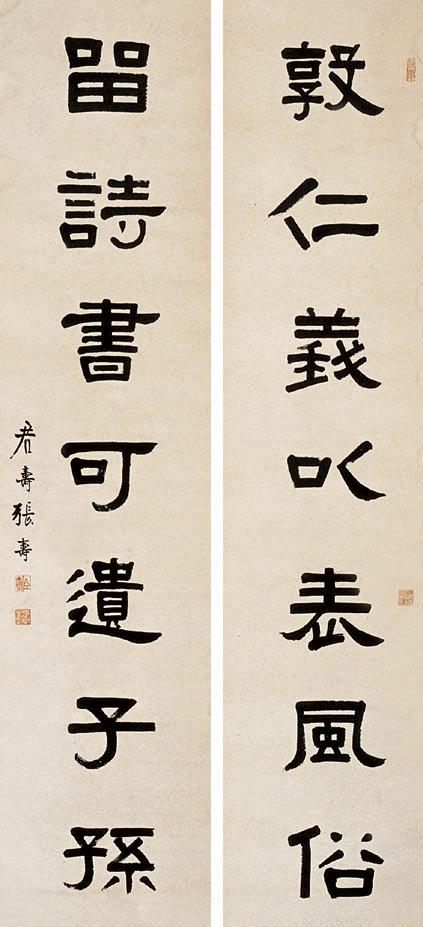 敦仁義㕥表風俗
留詩書可遺子孫
君壽張壽